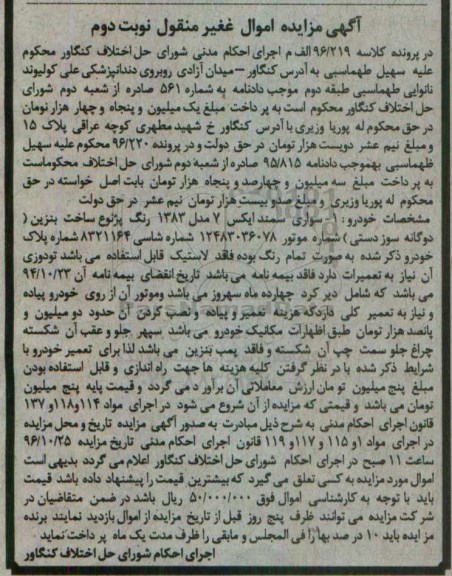 آگهی مزایده اموال غغیر منقول نوبت دوم
در پرونده کلاسه ۹۶/۲۱۹ الف م اجرای احکام مدنی شورای حل اختلاف کنگاور محکوم
علیه سهیل طهماسبی به آدرس کنگاور – میدان آزادی روبروی دندانپزشکی علی کولیوند
نانوایی طهماسبی طبقه دوم موجب دادنامه به شماره ۵۶۱ صادره از شعبه دوم شورای
حل اختلاف کنگاور محکوم است به پر داخت مبلغ یک میلیون و پنجاه و چهار هزار تومان
در حق محکوم له پوریا وزیری با آدرس کنگاور خ شهید مطهری کوچه عراقی پلاک ۱۵
و مبلغ نیم عشر دویست هزار تومان در حق دولت و در پرونده ۹۶/۲۲۰ محکوم علیه سهیل
طهماسبی بهموجب دادنامه ۹۵/۸۱۵ صادره از شعبه دوم شورای حل اختلاف محکوماست
به پر داخت مبلغ سه میلیون و چهارصد و پنجاه هزار تومان بابت اصل خواسته در حق
محکوم له پوریا وزیری و مبلغ صدو بیست هزار تومان نیم عشر در حق دولت
مشخصات خودرو : : سواری سمند ایکس ۷ مدل ۱۳۸۳ رنگ پژنوع ساخت بنزین (
دوگانه سوز دستی ) شماره موتور ۱۲۴۸۳۰۳۶۰۷۸ شماره شاسی ۸۳۲۱۱۶۴ شماره پلاک
خودرو ذکر شده به صورت تمام رنگ بوده فاقد لاستیک قابل استفاده می باشد تودوزی
آن نیاز به تعمیرات دارد فاقد بیمه نامه می باشد تاریخ انقضای بیمه نامه آن ۹۴/۱۰/۲۳
می باشد که شامل دیر کرد چهارده ماه سهروز می باشد وموتور آن از روی خودرو پیاده
و نیاز به تعمیر کلی داردکه هزینه تعمیر و پیاده و نصب کردن آن حدود دو میلیون و
پانصد هزار تومان طبق اظهارات مکانیک خودرو می باشد سپهر جلو و عقب آن شکسته
چراغ جلو سمت چپ آن شکسته و فاقد پمپ بنزین می باشد لذا برای تعمیر خودرو با
شرایط ذکر شده با در نظر گرفتن کلیه هزینه ها جهت راه اندازی و قابل استفاده بودن
مبلغ پنج میلیون تو مان ارزش معاملاتی آن برآور د می گردد و قیمت پایه پنج میلیون
تومان می باشد و قیمتی که مزایده از آن شروع می شود در اجرای مواد ۱۱۴و۱۱۸و ۱۳۷
قانون اجرای احکام مدنی به شرح ذیل مبادرت به صدور آگهی مزایده تاریخ و محل مزایده
در اجرای مواد ۱و ۱۱۵ و ۱۱۷و ۱۱۹ قانون اجرای احکام مدنی تاریخ مزایده ۹۶/۱۰/۲۵
ساعت ۱۱ صبح در اجرای احکام شورای حل اختلاف کنگاور اعلام می گردد بدیهی است
اموال مورد مزایده به کسی تعلق می گیرد که بیشترین قیمت را پیشنهاد داده باشد قیمت
باید با توجه به کارشناسی اموال فوق ۵۰/۰۰۰/۰۰۰ ریال باشد در ضمن متقاضیان در
شر کت مزایده می توانند ظرف پنج روز قبل از تاریخ مزایده از اموال بازدید نمایند برنده
مز ایده باید ۱۰ در صد بها را فی المجلس و مابقی را ظرف مدت یک ماه پر داخت نماید
اجرای احکام شورای حل اختلاف کنگاور